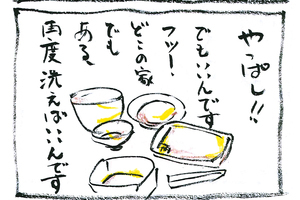 やっぱし!!
でもいいんです
フツー、
どこの家
でも
ある。
毎度洗えばいいんです